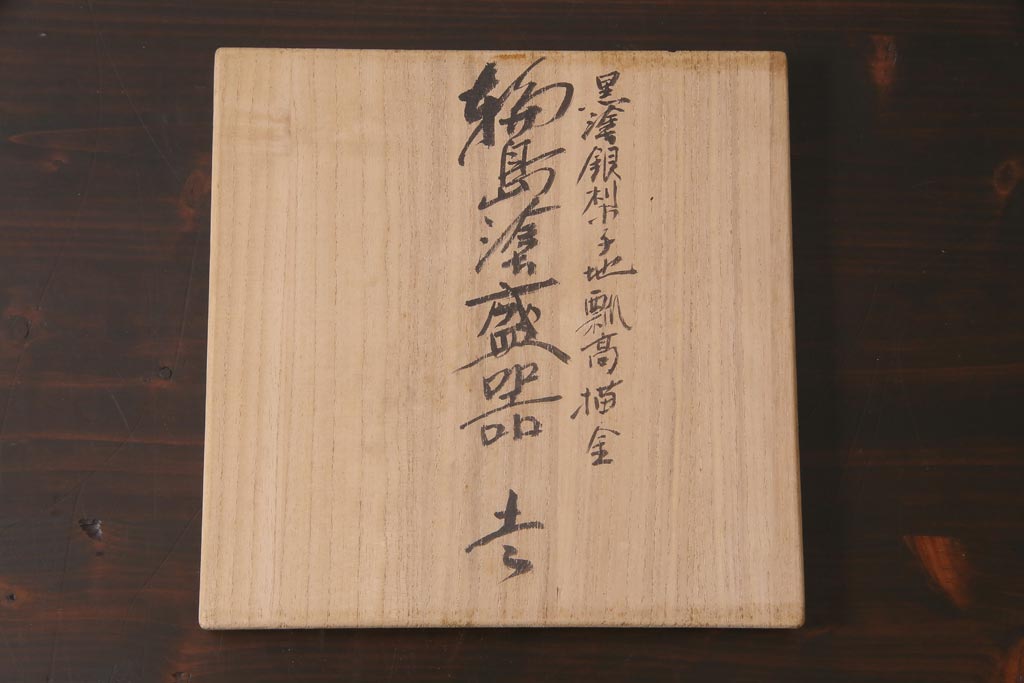 黒塗銀梨子地瓢高描金
輪島塗盛器　壱